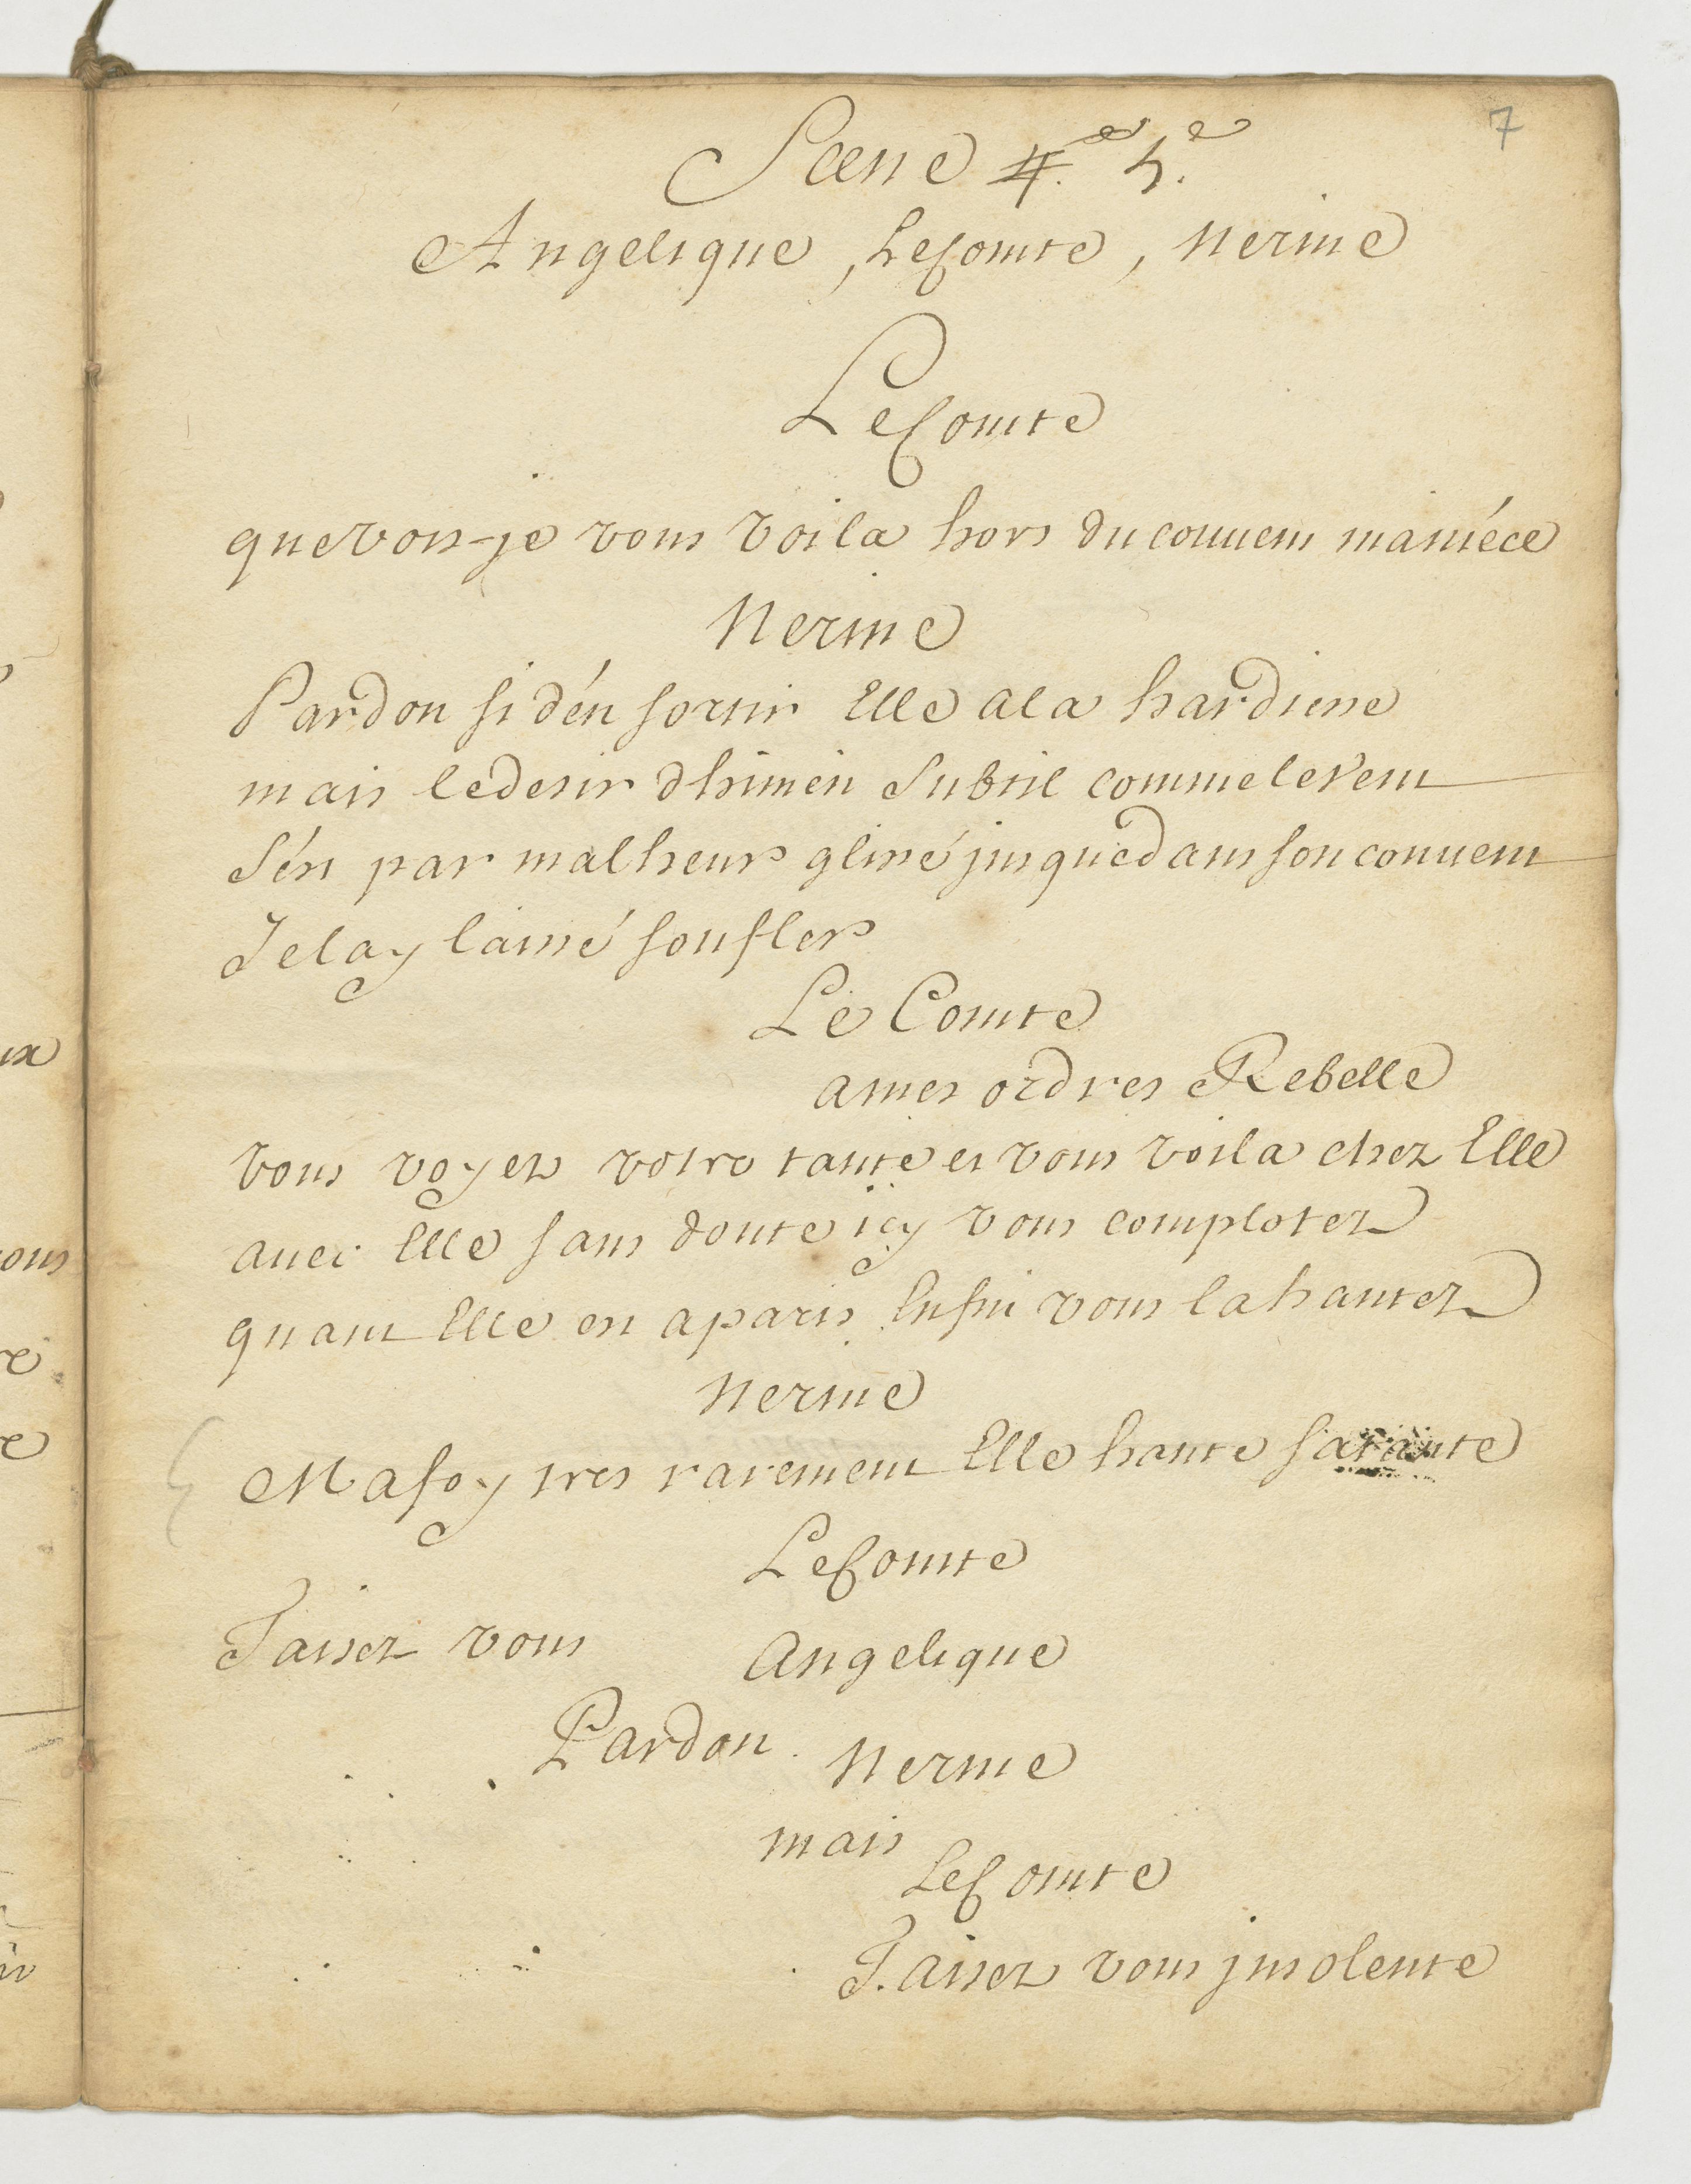 7
Scene 4.e 5.e
Angelique, LeComte, Nerine
LeComte
que vois-je vous voila hors du couuent ma niéce
Nerine
Pardon si d'én sortir Elle a la hardiesse
mais le desir d'himén subtil comme le vent
s'ést par malheur glissé jusque dans son couuent
Je lay laissé soufler
Le Comte
a mes ordres Rebelle
vous voyez votre tante et vous voila chez Elle
auec Elle sans doute icy vous complotez
quant Elle est a paris Enfin vous la hantez
Nerine
Ma foy tres rarement Elle hante sa tante
LeComte
Taisez vous
Angelique
Pardon.
Nerine
mais
LeComte
Taisez vous jnsolente
ux
ous
re
e